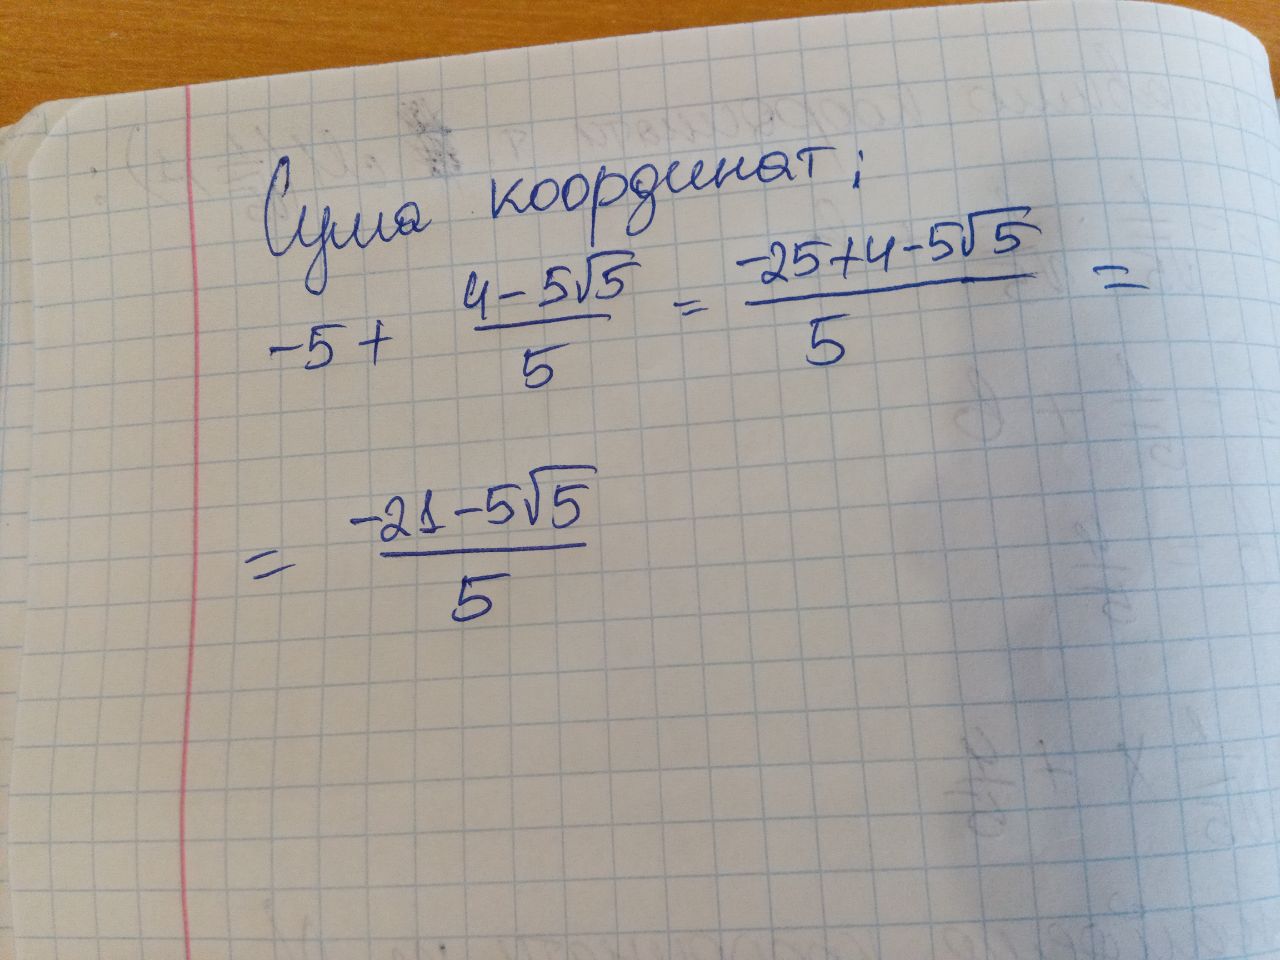 Сума координат:
-5 + \frac{4-5\sqrt{5}}{5} = \frac{-25+4-5\sqrt{5}}{5} =
= \frac{-21-5\sqrt{5}}{5}